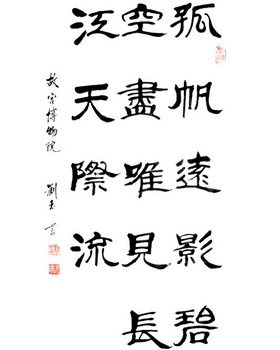 孤帆遠影碧
空盡唯見長
江天際流
故宮博物院 劉玉